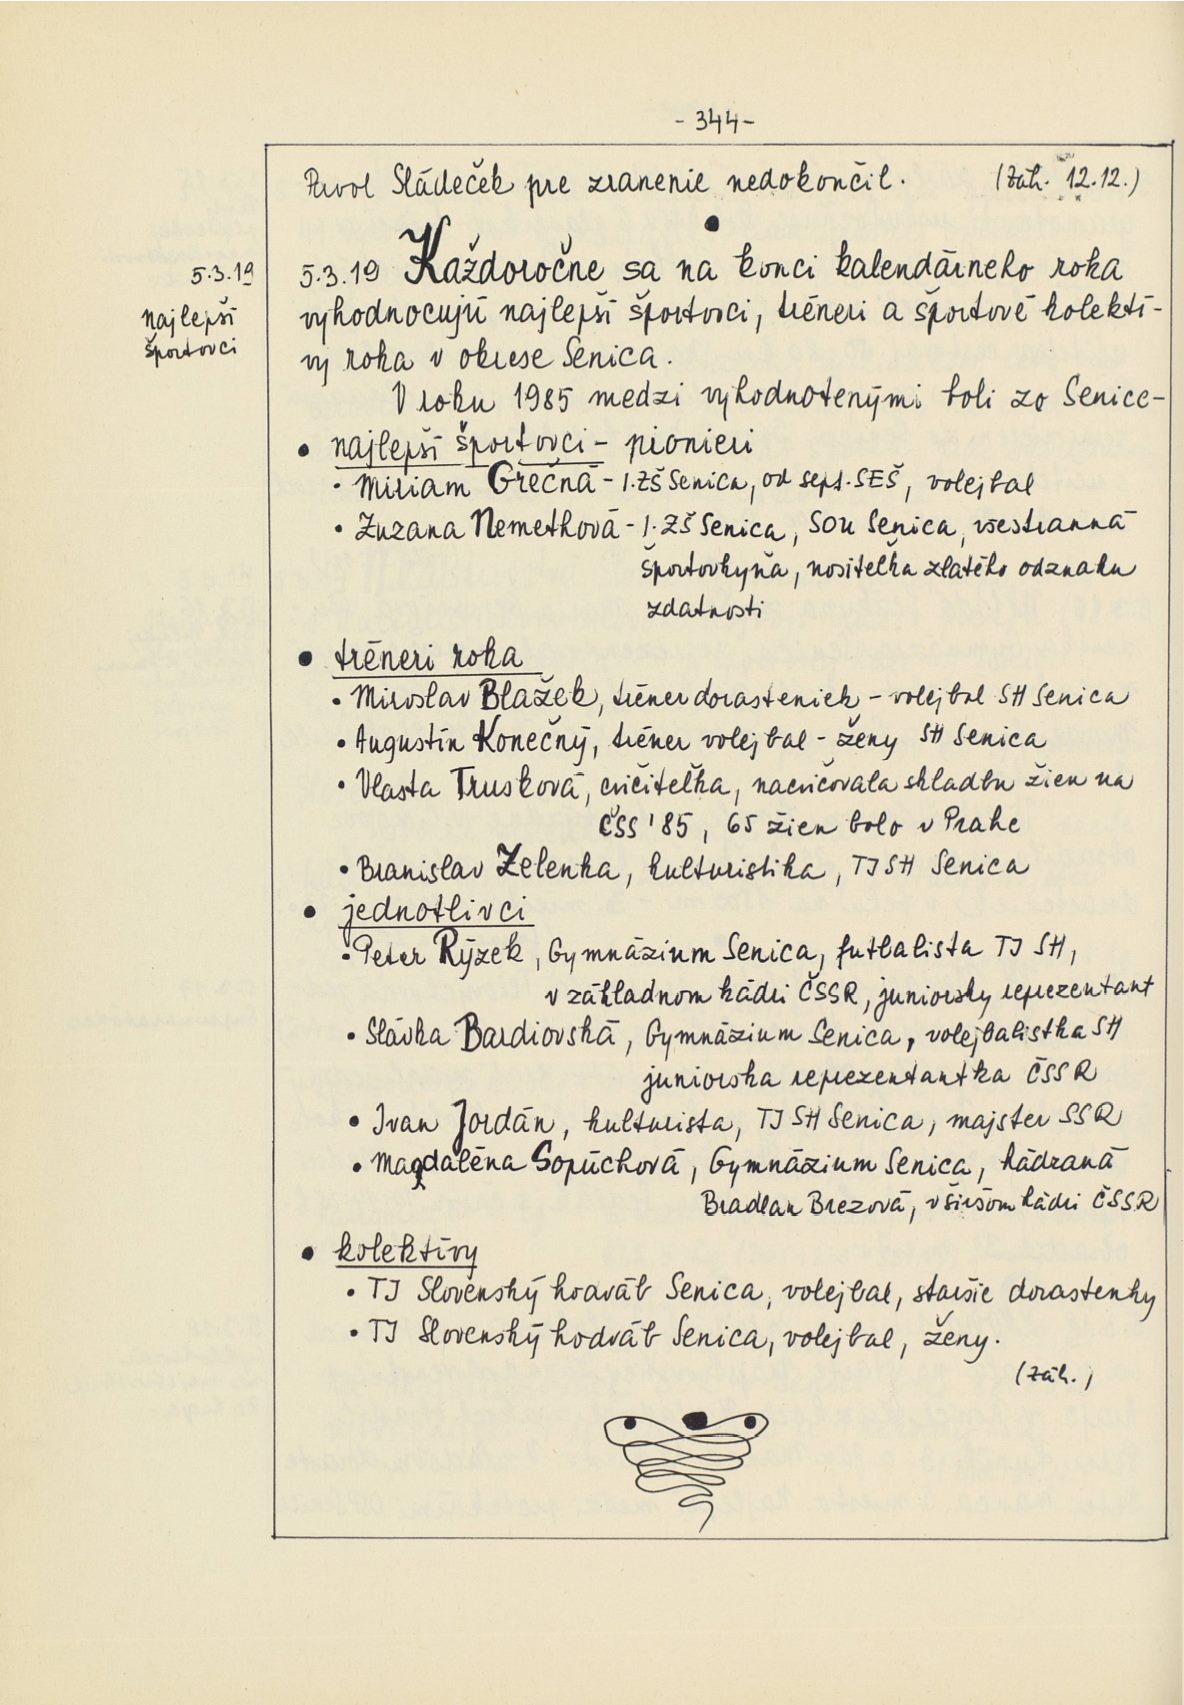 - 344 -
Pavol Sládeček pre zranenie nedokončil. (Záh. 12.12.)
5.3.19
najlepší
športovci
5.3.19 Každoročne sa na konci kalendárneho roka
vyhodnocujú najlepší športovci, tréneri a športové kolektí-
vy roka v okrese Senica.
V roku 1985 medzi vyhodnotenými boli zo Senice-
• najlepší športovci - pionieri
• Miriam Grečná - 1.ZŠ Senica, od sept. SEŠ, volejbal
• Zuzana Nemethová - 1.ZŠ Senica, SOU Senica, všestranná
športovkyňa, nositeľka zlatého odznaku
zdatnosti
• tréneri roka
• Miroslav Blažek, tréner dorasteniek - volejbal SH Senica
• Augustín Konečný, tréner volejbal - ženy SH Senica
• Vlasta Trusková, cvičiteľka, nacvičovala skladbu žien na
ČSS '85, 65 žien bolo v Prahe
• Branislav Zelenka, kulturistika, TJ SH Senica
• jednotlivci
• Peter Rýzek, Gymnázium Senica, futbalista TJ SH,
v základnom kádri ČSSR, juniorsky reprezentant
• Slávka Bardiovská, Gymnázium Senica, volejbalistka SH
juniorska reprezentantka ČSSR
• Ivan Jordán, kulturista, TJ SH Senica, majster SSR
• Magdaléna Sopúchová, Gymnázium Senica, hádzaná
Bradlan Brezová, v širšom kádri ČSSR
• kolektívy
• TJ Slovenský hodváb Senica, volejbal, staršie dorastenky
• TJ Slovenský hodváb Senica, volejbal, ženy.
(Záh.)